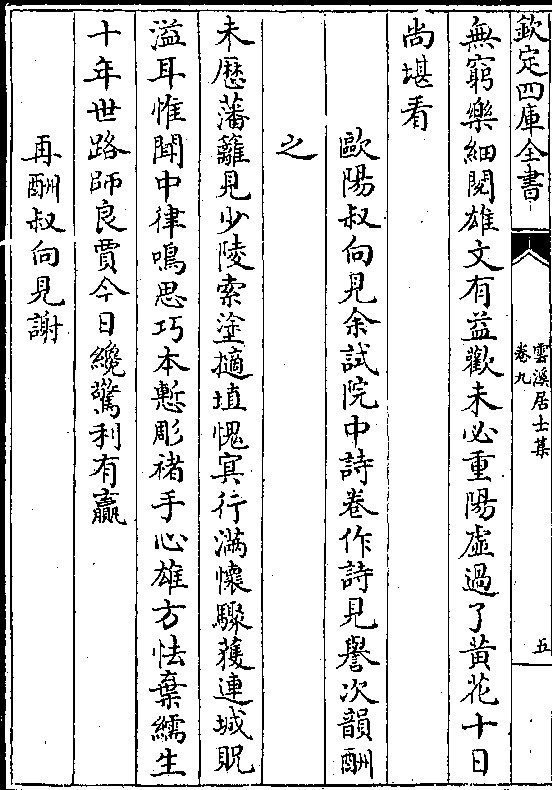 欽定四庫全書
雲溪居士集
卷九
五
無窮樂細閱雄文有益歡未必重陽虛過了黃花十日
尚堪看
歐陽叔向見余試院中詩卷作詩見譽次韻酬
之
未歷藩籬見少陵索塗擿埴愧冥行滿懷驟獲連城貺
溢耳惟聞中律鳴思巧本慙彫楮手心雄方怯棄繻生
十年世路師良賈今日纔驚利有贏
再酬叔向見謝